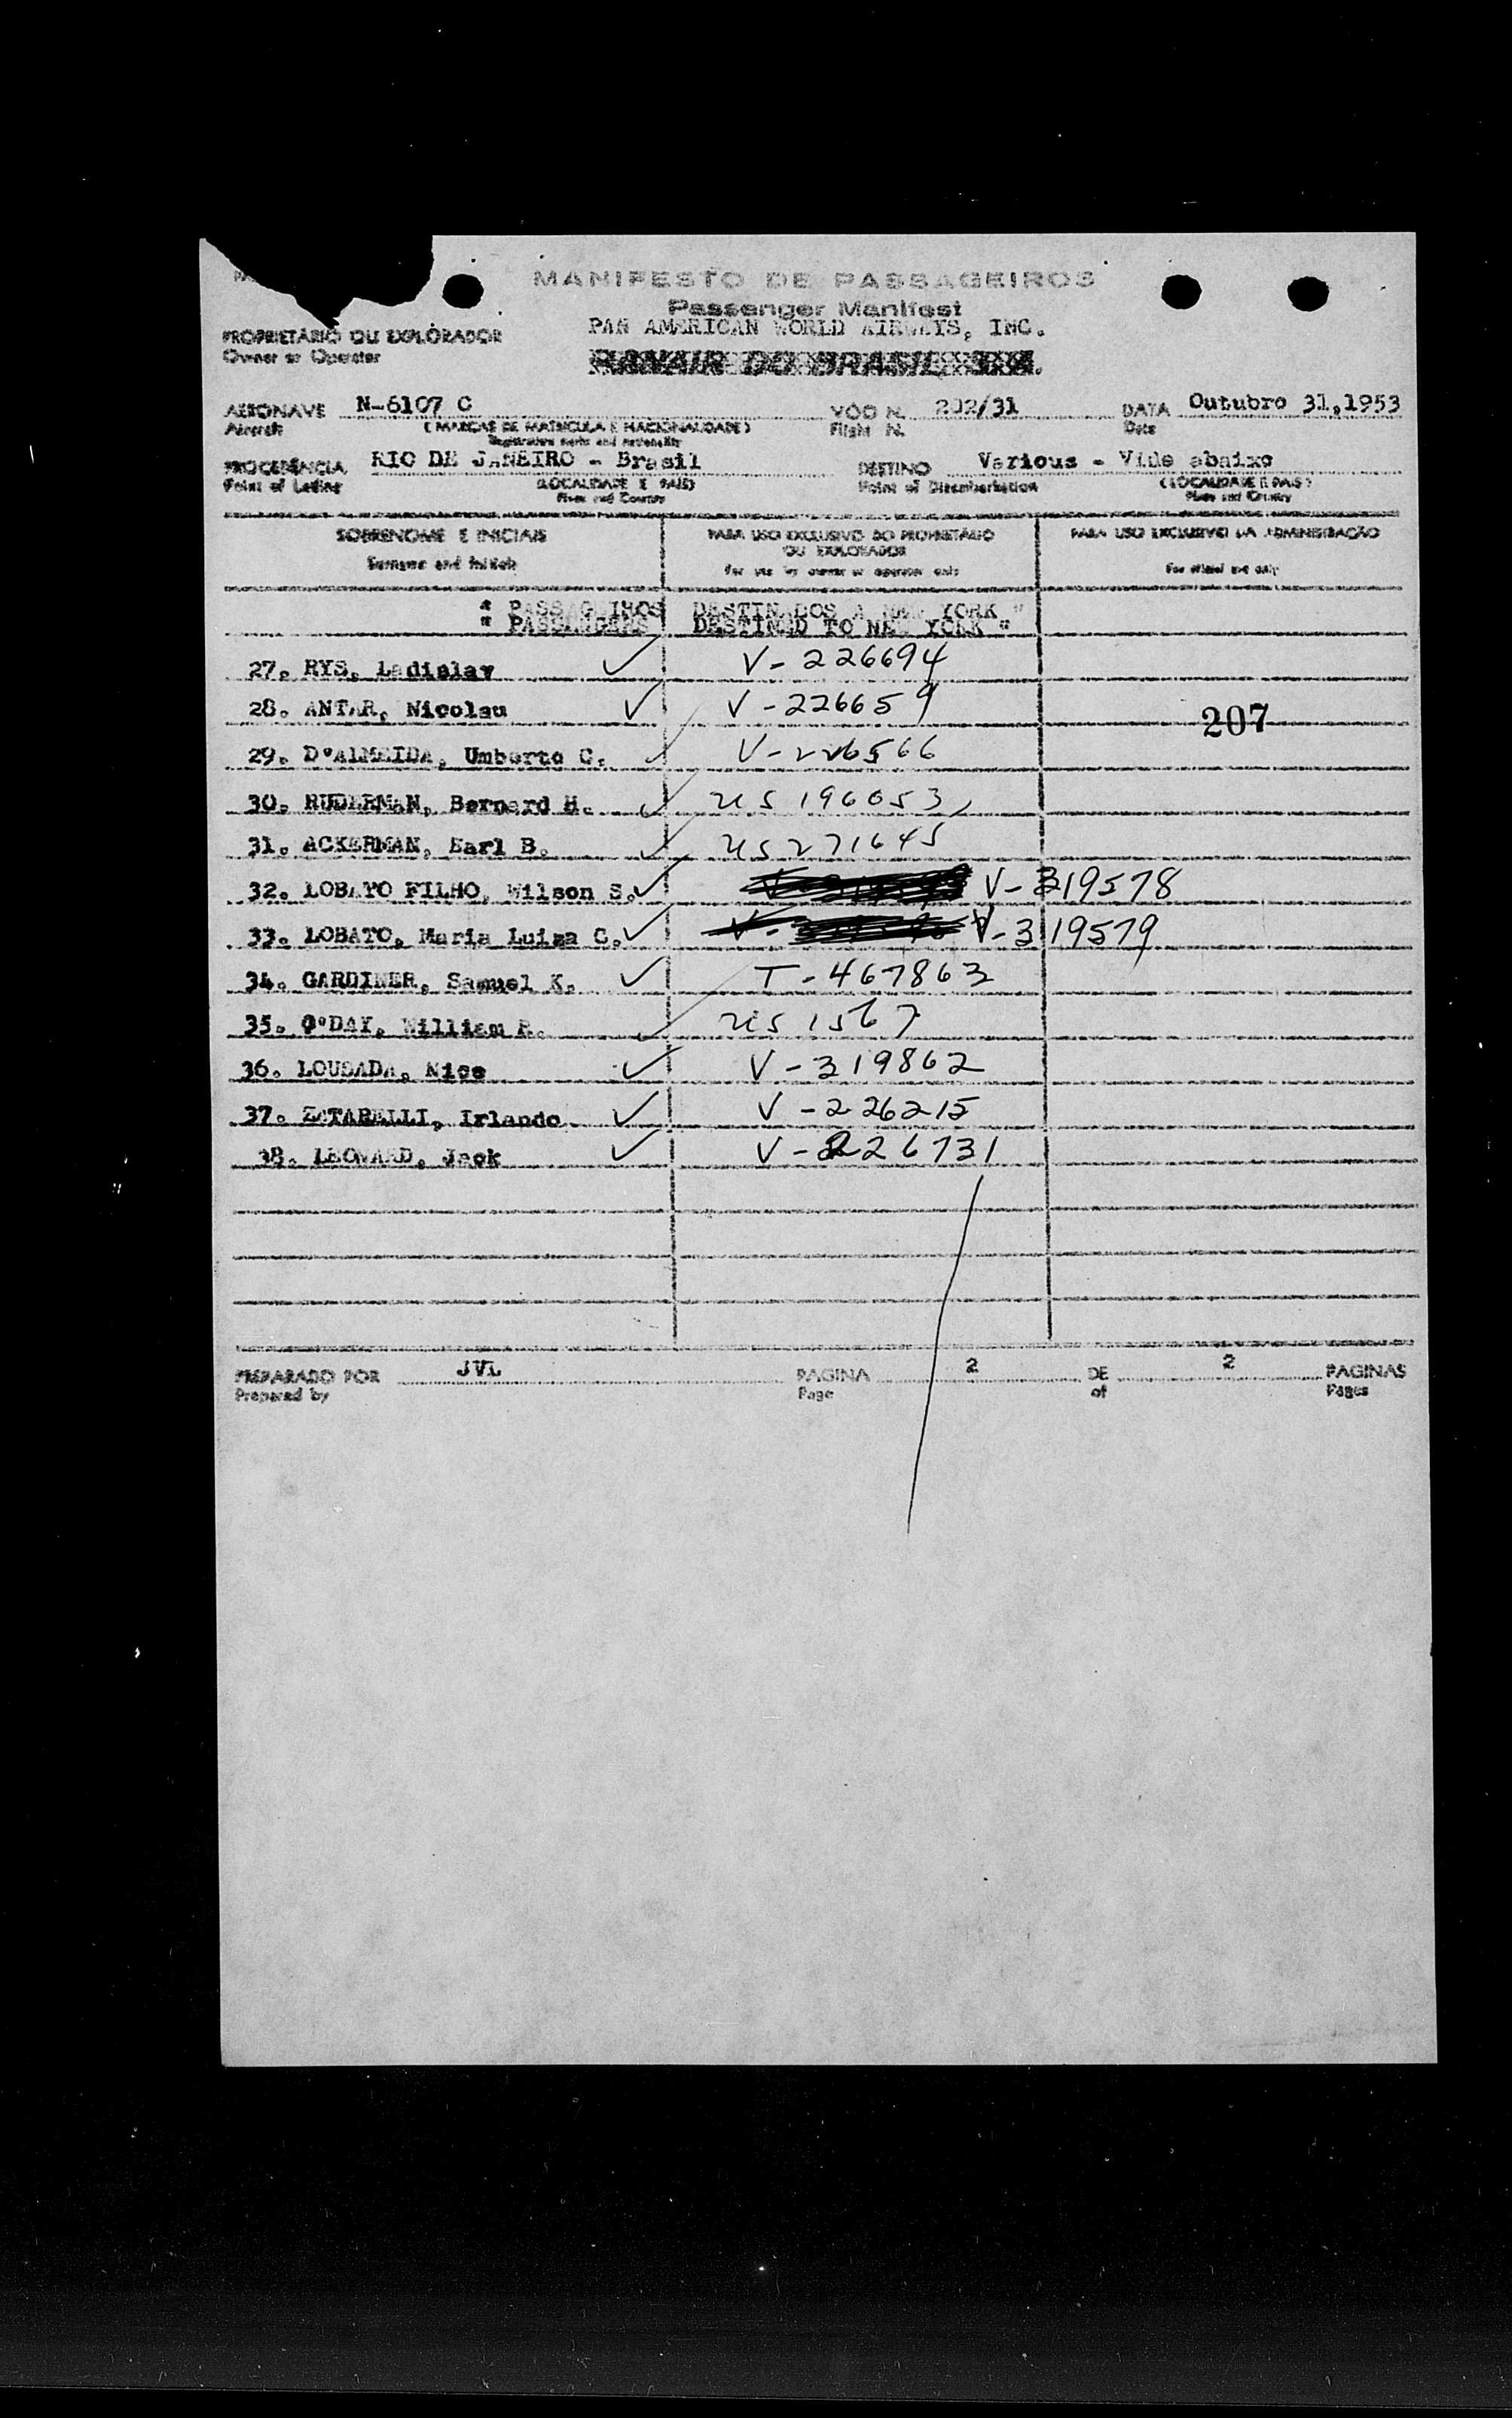 MANIFESTO DE PASSAGEIROS
Passenger Manifest
PROPRIETÁRIO OU EXPLORADOR
Owner or Operator
PAN AMERICAN WORLD AIRWAYS, INC.
PANAIR DO BRASIL S.A.
AERONAVE N-6107 C VÔO N. 202/31 DATA Outubro 31,1953
Aircraft (MARCAS DE MATRICULA E NACIONALIDADE) Flight N. Date
Registration marks and nationality
PROCEDÊNCIA RIO DE JANEIRO - Brasil DESTINO Various - Vide abaixo
Point of Lading (LOCALIDADE E PAIS) Point of Disembarkation (LOCALIDADE E PAIS)
Place and Country Place and Country
SOBRENOME E INICIAIS PARA USO EXCLUSIVO DO PROPRIETÁRIO OU EXPLORADOR PARA USO EXCLUSIVO DA ADMINISTRAÇÃO
Surname and Initials For use by owner or operator only For official use only
" PASSAGEIROS DESTINADOS A NEW YORK "
" PASSENGERS DESTINED TO NEW YORK "
27. RYS, Ladislav V-226694
28. ANTAR, Nicolau V-226659
207
29. D'ALMEIDA, Umberto C. V-226566
30. RUDERMAN, Bernard H. US 196053
31. ACKERMAN, Earl B. US 271645
32. LOBATO FILHO, Wilson S. V-319578
33. LOBATO, Maria Luiza C. V-319579
34. GARDINER, Samuel K. T-467863
35. O'DAY, William R. US 1567
36. LOUSADA, Nice V-319862
37. ZATARELLI, Irlando V-226215
38. LEONARD, Jack V-226731
PREPARADO POR JVL PAGINA 2 DE 2 PAGINAS
Prepared by Page of Pages